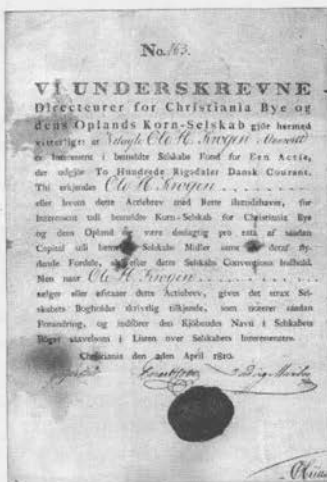 No. 163.
VI UNDERSKREVNE
Directeurer for Christiania Bye og
dens Oplands Korn-Selskab gjöre hermed
vitterligt at Ole H. Krogen
er Interessent i bemeldte Selskabs Fond for Een Actie,
der udgjör To Hundrede Rigsdaler Dansk Courant.
Thi erkjendes Ole H. Krogen
eller hvem dette Actiebrev med Rette ihændehaver, for
Interessent udi bemeldte Korn-Selskab for Christiania Bye
og dens Opland og være deelagtig pro rata af saadan
Capital udi Selskabs Midler samt deraf fly-
dende Fordele, alt efter dette Selskabs Conventions Indhold.
Men naar Ole H. Krogen
sælger eller afstaaer dette Actiebrev, gives det strax Sel-
skabets Bogholder skrivtlig tilkjende, som noterer saadan
Forandring, og indförer den Kjöbendes Navn i Selskabets
Böger saavelsom i Listen over Selskabets Interessentere.
Christiania den 2den April 1810.